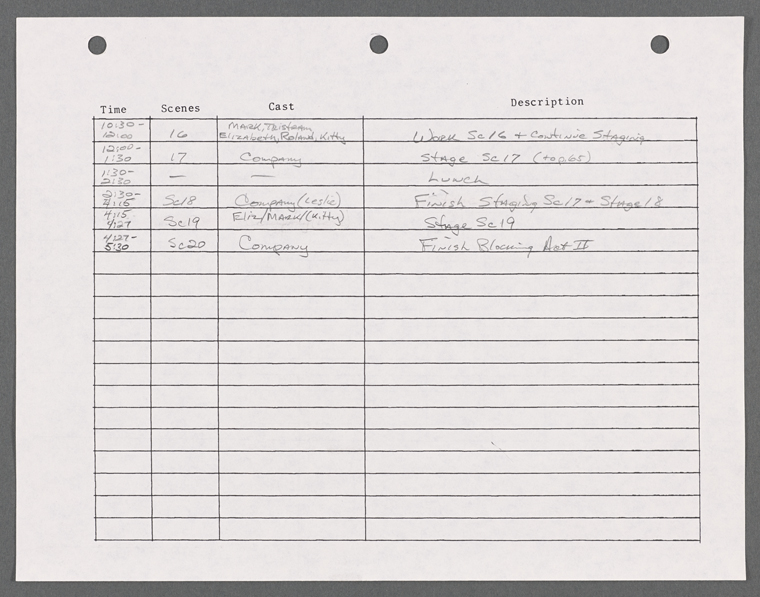 Time Scenes Cast Description
10:30-
12:00 16 MARK, Tristram,
Elizabeth, Roland, Kitty Work Sc16 + Continue Staging
12:00-
1:30 17 Company Stage Sc 17 (top.65)
1:30-
2:30 — — Lunch
2:30-
4:15 Sc18 Company (Leslie) Finish Staging Sc17 + Stage 18
4:15
4:27 Sc19 Eliz/MARK/(Kitty) Stage Sc 19
4:27-
5:30 Sc20 Company Finish Blocking Act II